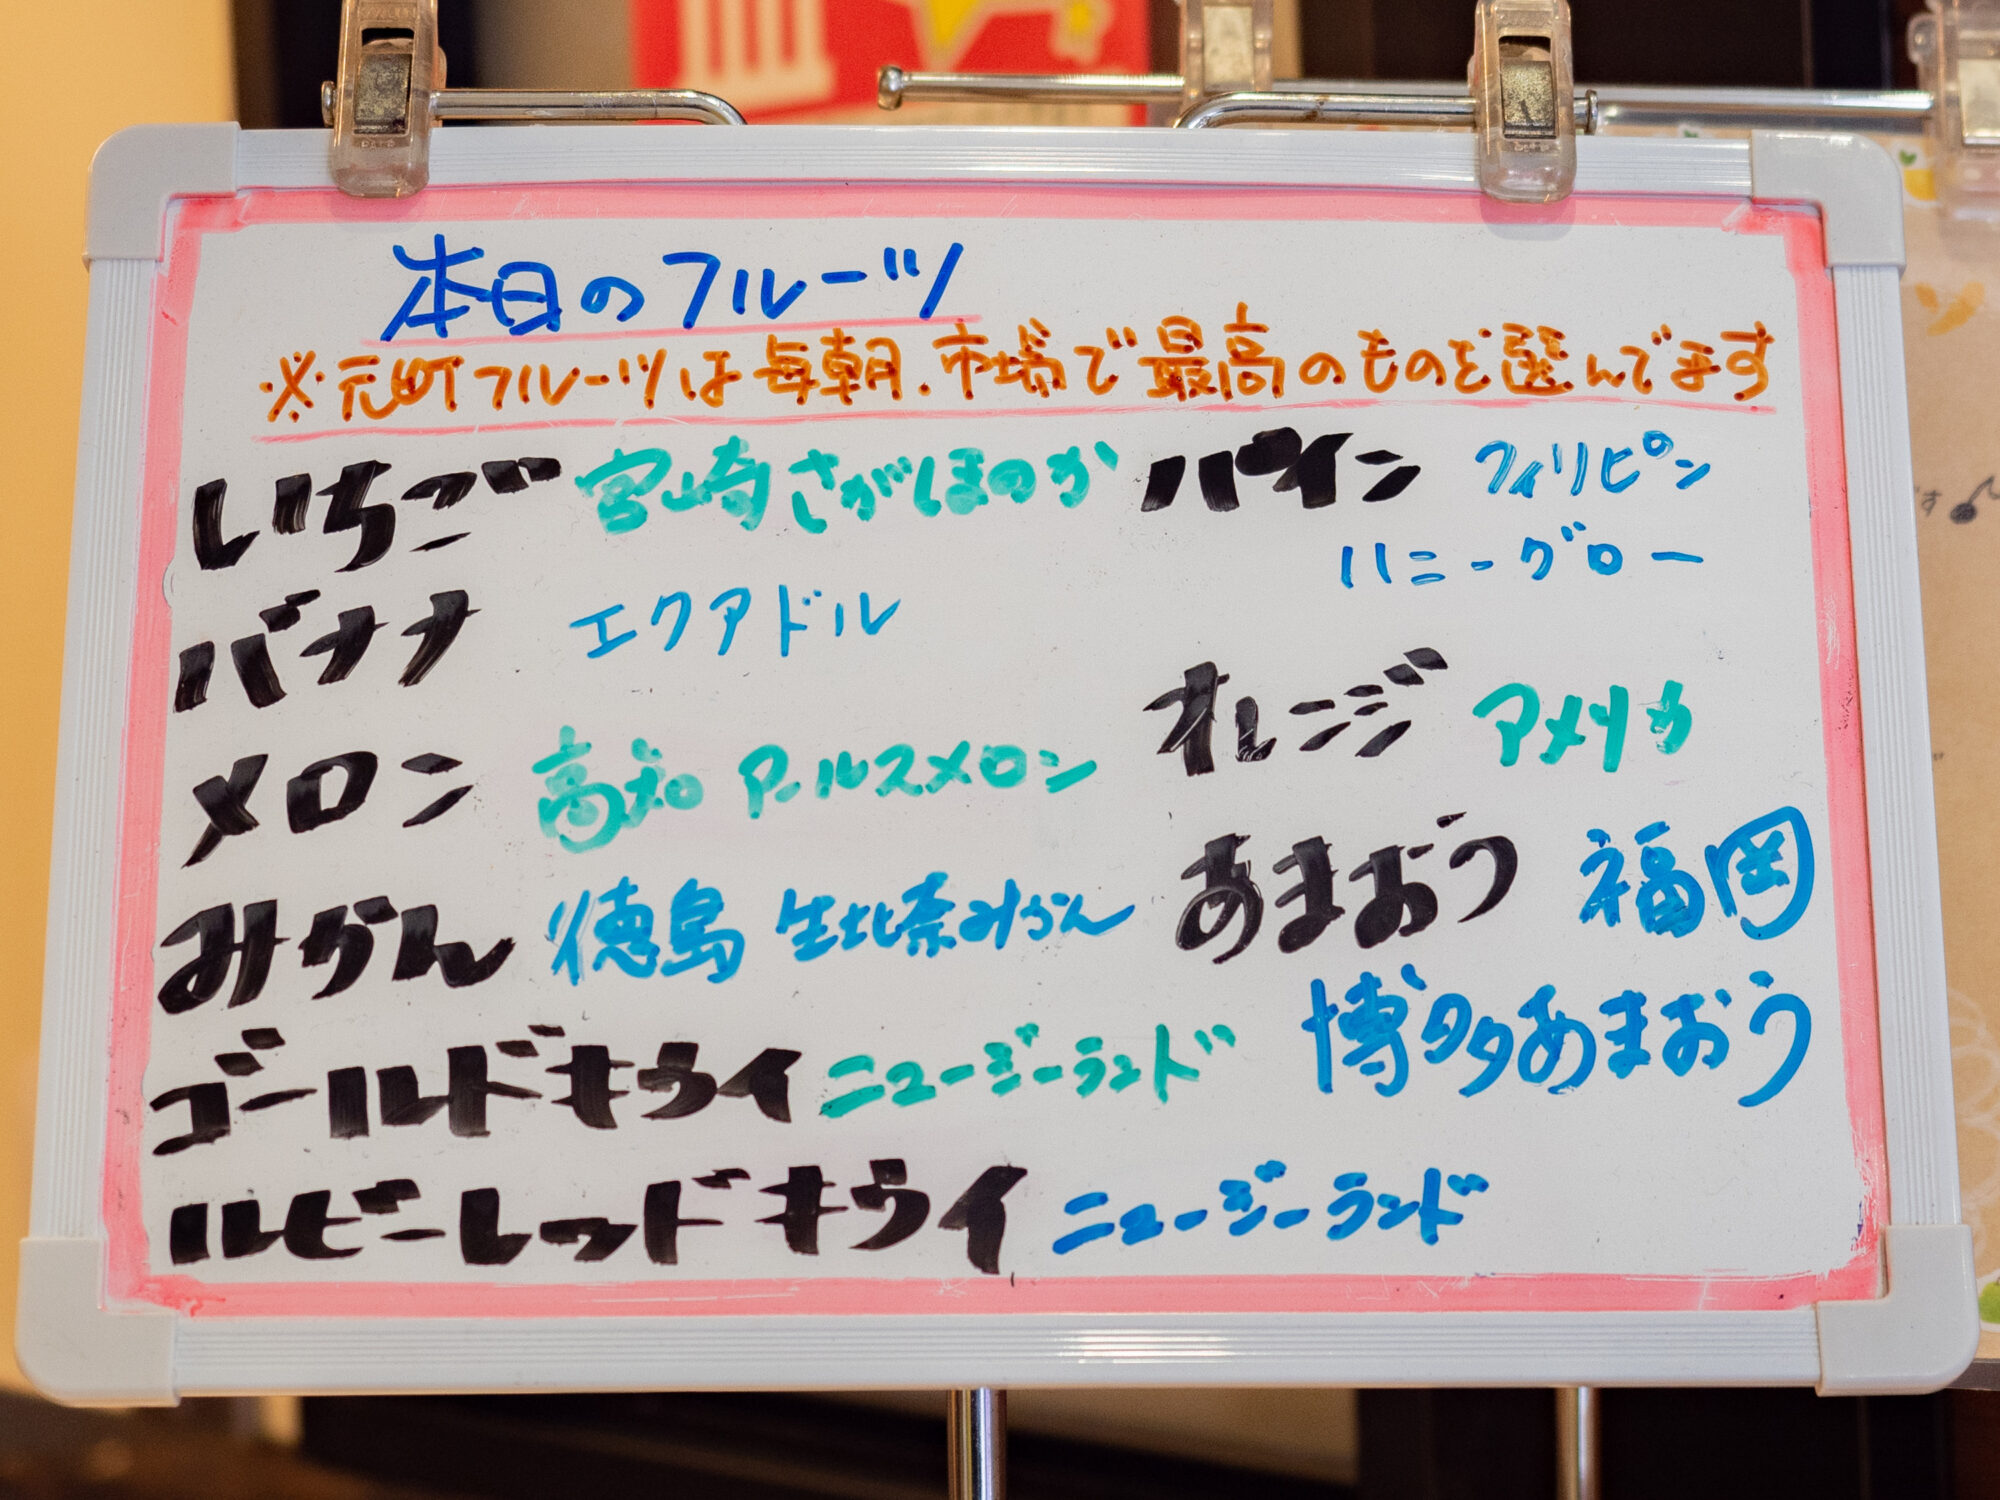 本日のフルーツ
※元町フルーツは毎朝、市場で最高のものを選んでます
いちご 宮崎 さがほのか
バナナ エクアドル
メロン 高知 アールスメロン
みかん 徳島 生比奈みかん
ゴールドキウイ ニュージーランド
ルビーレッドキウイ ニュージーランド
パイン フィリピン
ハニーグロー
オレンジ アメリカ
あまおう 福岡
博多あまおう